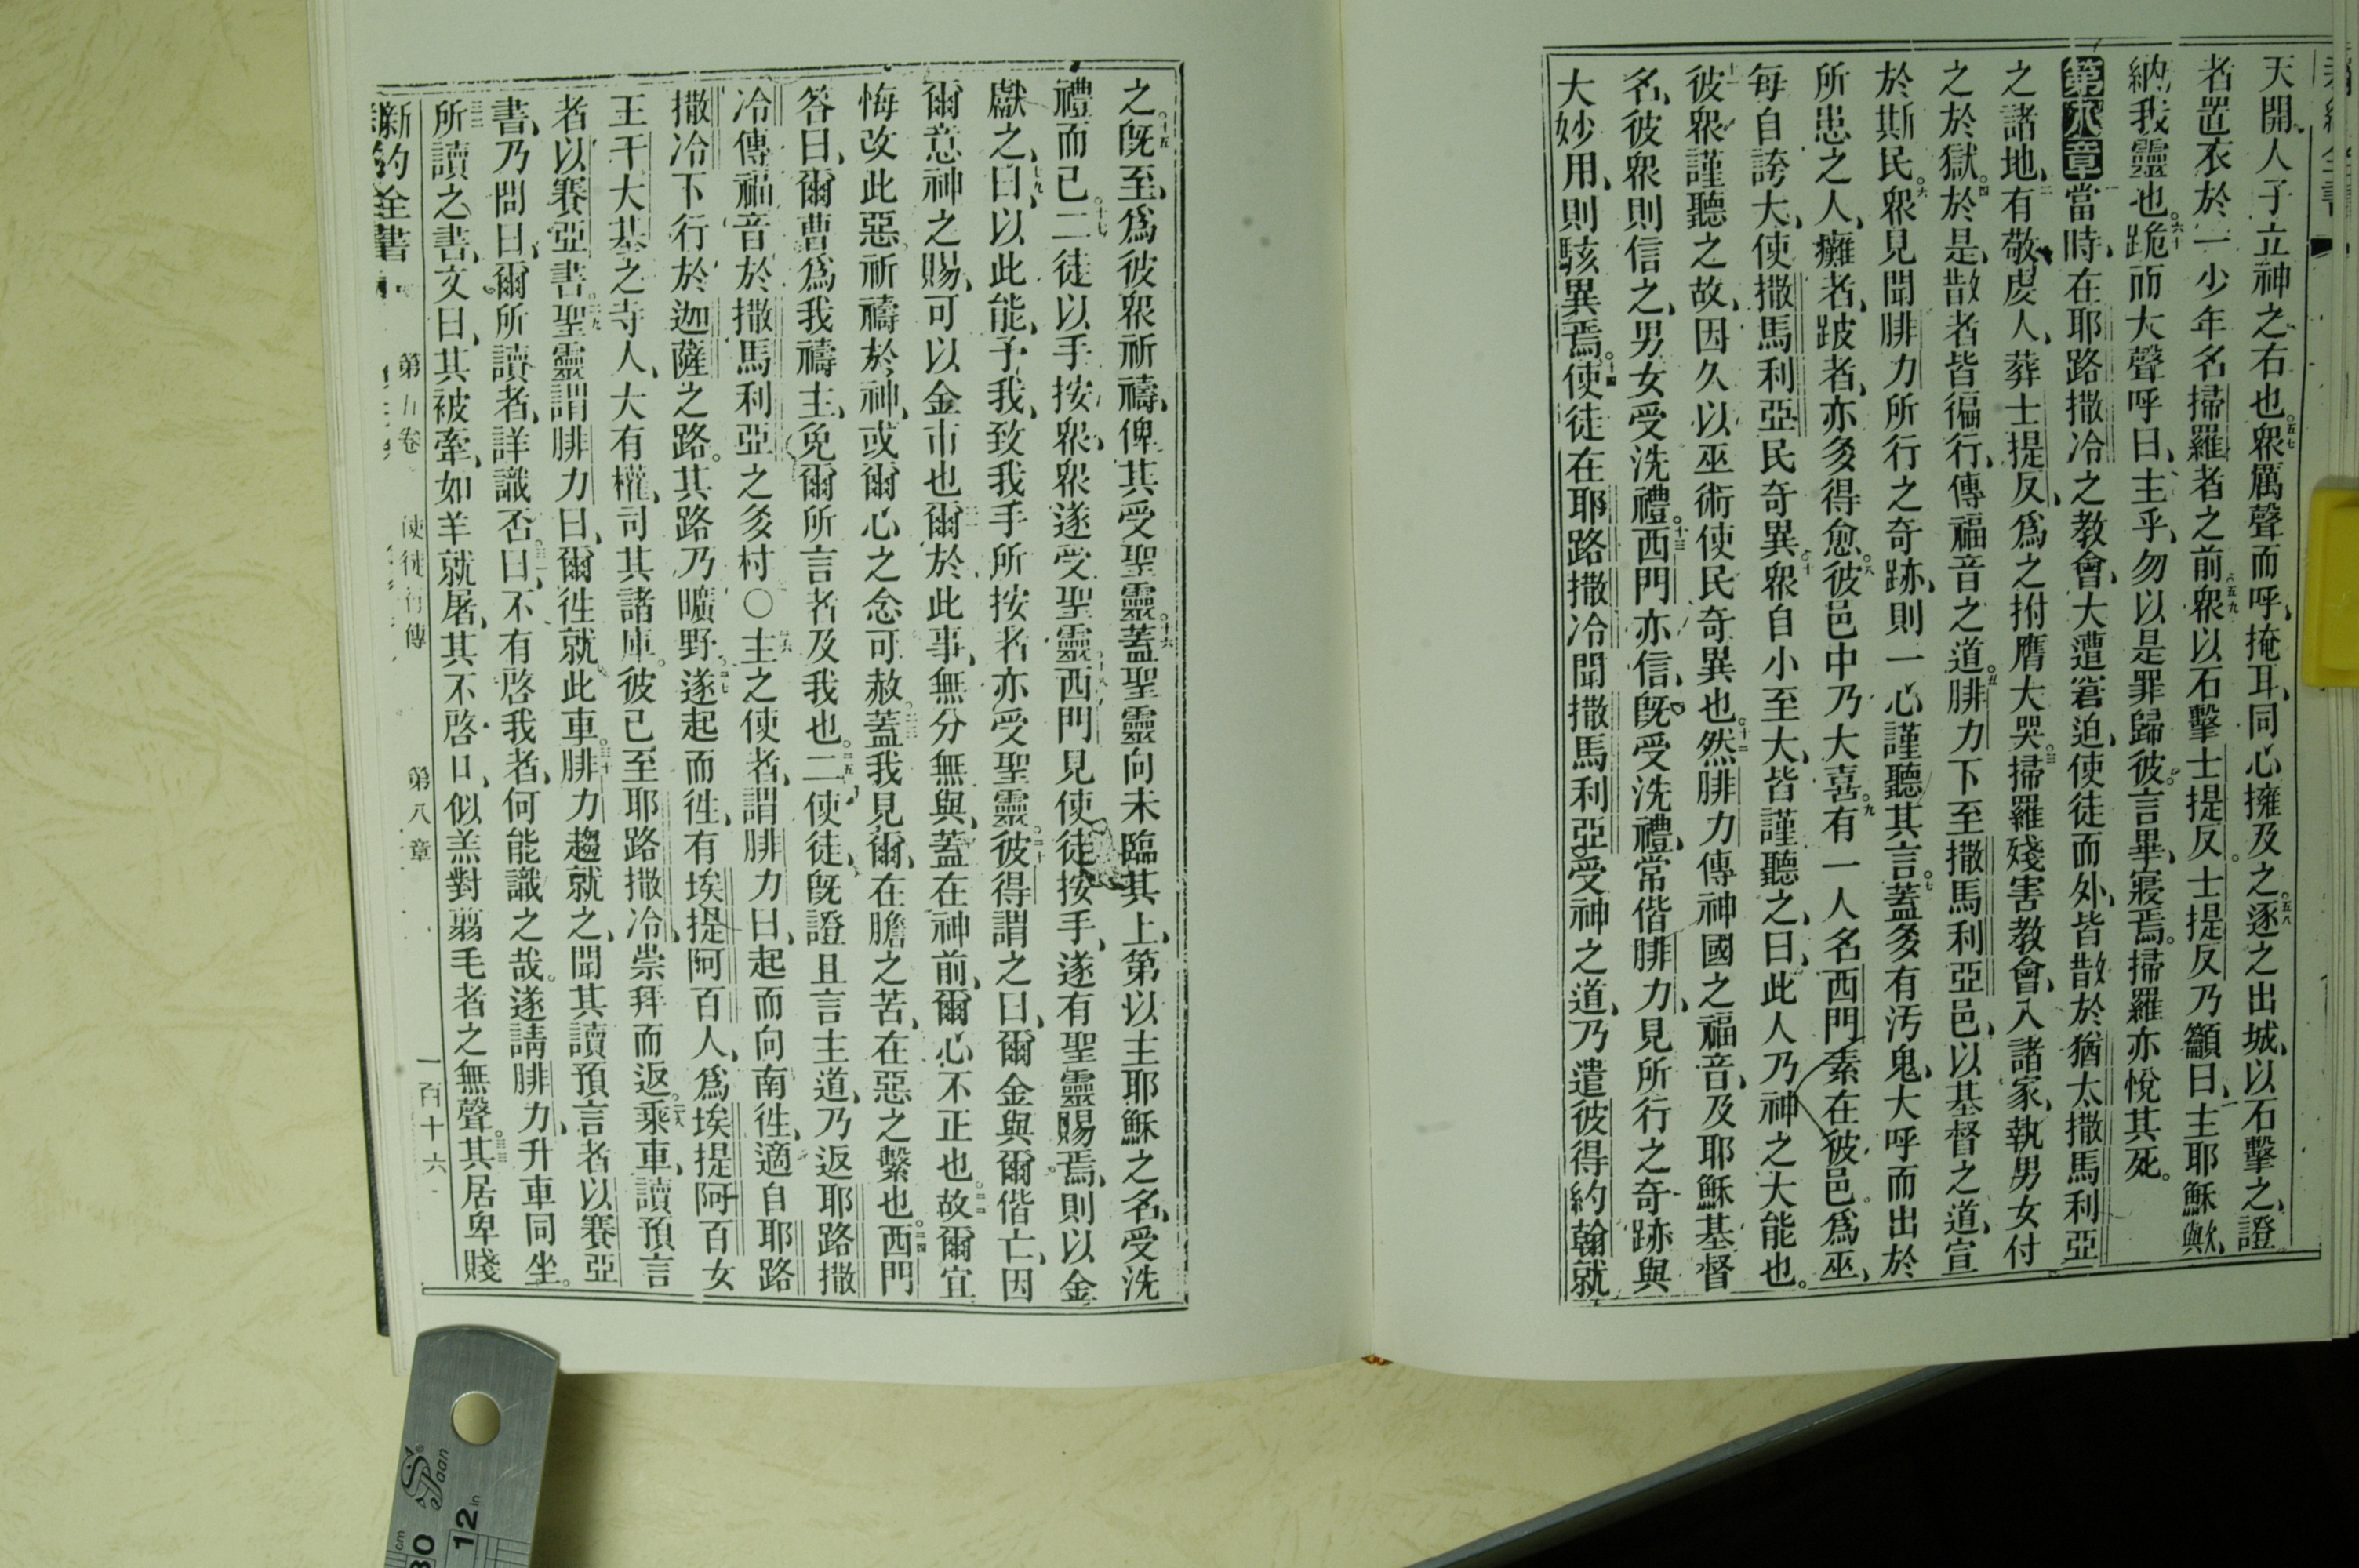 天開、人子立神之右也。五七衆厲聲而呼、掩耳、同心擁及之。五八逐之出城、以石擊之、證
者置衣於一少年名掃羅者之前。五九衆以石擊士提反。士提反乃籲曰、主耶穌歟、
納我靈也。六十跪而大聲呼曰、主乎、勿以是罪歸彼。言畢、寢焉。掃羅亦悅其死。
第八章一當時、在耶路撒冷之教會、大遭窘迫、使徒而外、皆散於猶太撒馬利亞
之諸地、二有敬虔人、葬士提反、爲之拊膺大哭。三掃羅殘害教會、入諸家、執男女付
之於獄。四於是、散者皆徧行、傳福音之道。五腓力下至撒馬利亞邑、以基督之道、宣
於斯民。六衆見聞腓力所行之奇跡、則一心謹聽其言。七蓋多有汚鬼、大呼而出於
所患之人、癱者、跛者、亦多得愈。八彼邑中乃大喜。九有一人名西門、素在彼邑。爲巫、
每自誇大、使撒馬利亞民奇異。十衆自小至大、皆謹聽之、曰、此人乃神之大能也。
十一彼衆謹聽之故、因久以巫術使民奇異也。十二然腓力傳神國之福音、及耶穌基督
名、彼衆則信之、男女受洗禮。十三西門亦信、旣受洗禮、常偕腓力、見所行之奇跡與
大妙用、則駭異焉。十四使徒在耶路撒冷聞撒馬利亞受神之道、乃遣彼得約翰就
之。十五旣至、爲彼衆祈禱、俾其受聖靈。十六蓋聖靈向未臨其上、第以主耶穌之名、受洗
禮而已。十七二徒以手按衆、衆遂受聖靈。十八西門見使徒按手、遂有聖靈賜焉、則以金
獻之、十九曰、以此能、予我、致我手所按者亦受聖靈。二十彼得謂之曰、爾金與爾偕亡、因
爾意神之賜、可以金市也。二一爾於此事、無分無與、蓋在神前、爾心不正也。二二故爾宜
悔改此惡、祈禱於神、或爾心之念可赦。二三蓋我見爾、在膽之苦、在惡之繫也。二四西門
答曰、爾曹爲我禱主、免爾所言者及我也。二五二使徒、旣證且言主道、乃返耶路撒
冷、傳福音於撒馬利亞之多村〇二六主之使者、謂腓力曰、起而向南徃、適自耶路
撒冷下行於迦薩之路。其路乃曠野。二七遂起而徃、有埃提阿百人、爲埃提阿百女
王干大基之寺人、大有權、司其諸庫。彼已至耶路撒冷、崇拜而返。二八乘車、讀預言
者以賽亞書。二九聖靈謂腓力曰、爾徃就此車。三十腓力趨就之、聞其讀預言者以賽亞
書、乃問曰、爾所讀者、詳識否。三一曰、不有啓我者、何能識之哉。遂請腓力、升車同坐。
三二所讀之書、文曰、其被牽、如羊就屠、其不啓口、似羔對翦毛者之無聲。三三其居卑賤
新約全書 第五卷 使徒行傳 第八章 一百十六
Spaan
cm 30 12 in